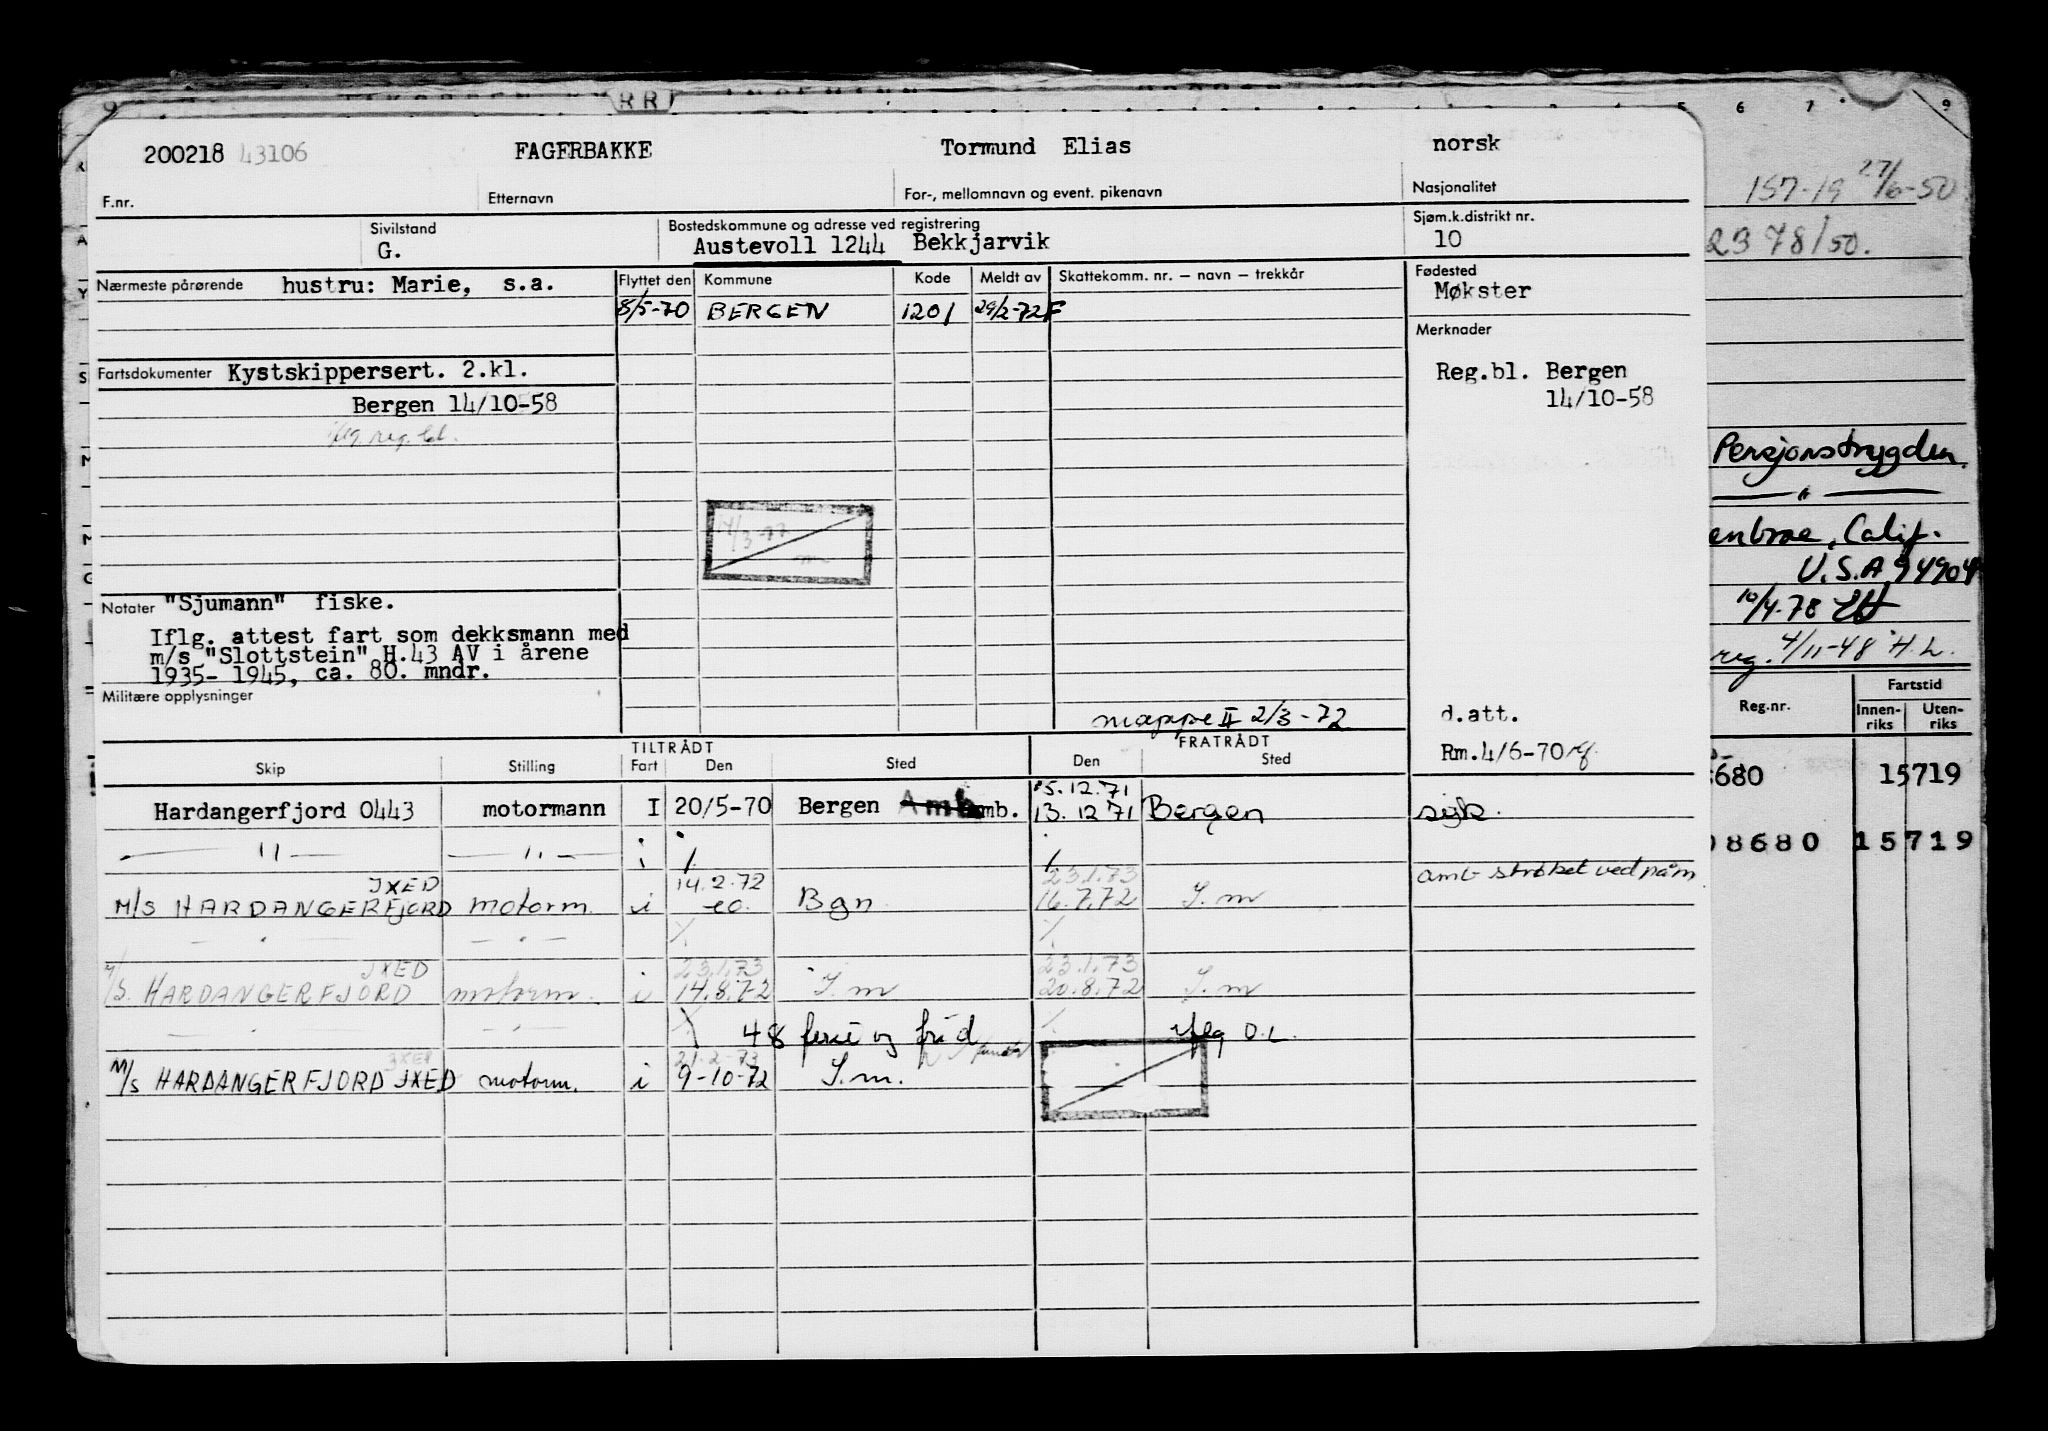 200218 43106 FAGERBAKKE Tormund Elias norsk
F.nr. Etternavn For-, mellomnavn og event. pikenavn Nasjonalitet
Sivilstand Bostedskommune og adresse ved registrering Sjøm.k.distrikt nr.
G. Austevoll 1244 Bekkjarvik 10
Nærmeste pårørende hustru: Marie, s.a. Flyttet den Kommune Kode Meldt av Skattekomm. nr. — navn — trekkår Fødested
Møkster
8/5-70 BERGEN 1201 29/2-72F
Merknader
Fartsdokumenter Kystskippersert. 2.kl. Reg.bl. Bergen
Bergen 14/10-58 14/10-58
iflg reg. bl.
14/3-72
Notater "Sjumann" fiske.
Iflg. attest fart som dekksmann med
m/s "Slottstein" H.43 AV i årene
1935- 1945, ca. 80. mndr.
Militære opplysninger
mappe II 2/3-72 d.att.
Rm.4/6-70
TILTRÅDT FRATRÅDT
Skip Stilling Fart Den Sted Den Sted
15.12.71
Hardangerfjord 0443 motormann I 20/5-70 Bergen Amb mb. 13.12 71 Bergen syk.
— " — — " — i
amb strøket ved påm
JXED 14.2.72 23.1.73
M/S HARDANGERFJORD motorm. i eo. Bgn 16.7.72 S.m
— " — — " —
JXED 23.1.73 23.1.73
M/S. HARDANGERFJORD motorm. i 14.8.72 S.m 20.8.72 S.m
— " — — " — 48 ferie og frid iflg O.L.
JXED 21.2.73
M/S HARDANGERFJORD JXED motorm. i 9-10-72 S.m.
RR
5 6 7 9
157-19 27/6-50
2378/50.
Pensjonstrygden.
— " —
enbrae, Calif.
U.S.A 94904
10/4.78 EH
reg. 4/11-48 H.L.
Fartstid
Reg.nr. Innen-riks Uten-riks
680 15719
08680 15719